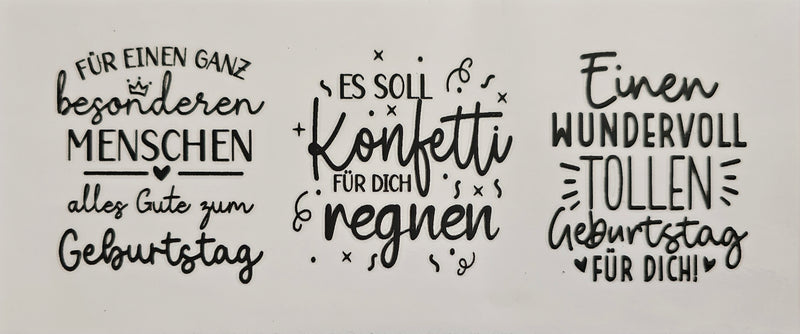 FÜR EINEN GANZ
besonderen
MENSCHEN
alles Gute zum
Geburtstag
ES SOLL
Konfetti
FÜR DICH
regnen
Einen
WUNDERVOLL
TOLLEN
Geburtstag
FÜR DICH!